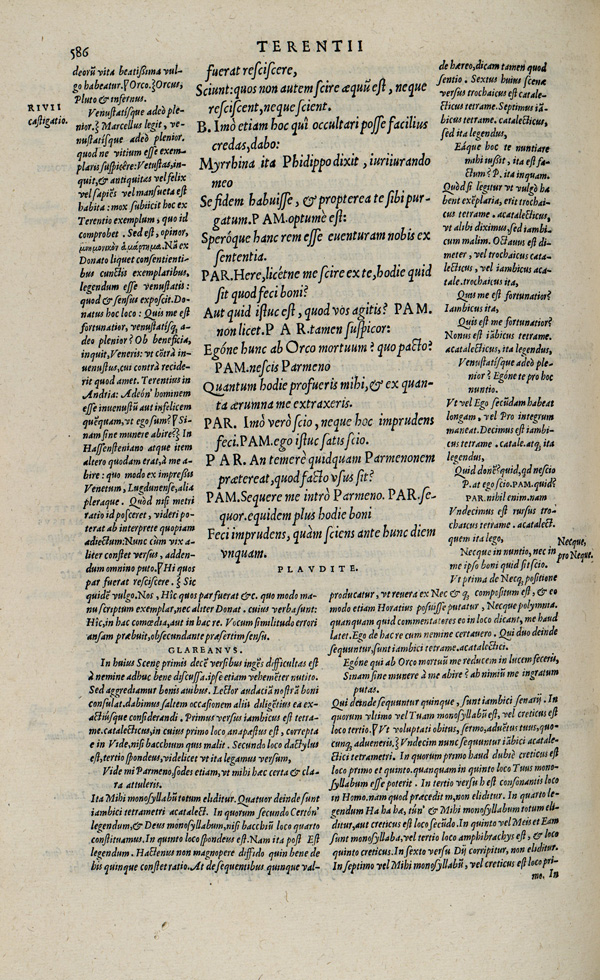 586
TERENTII
RIVII
castigatio.
deorũ vita beatißima vul-
go habeatur. Orco. Orcus,
Pluto & infernus.
Venustatisque adeò ple-
nior. Marcellus legit, ve-
nustatisque adeò plenior.
quod ne vitium esse exem-
plaris suspicere: Vetustas, in-
quit, & antiquitas vel felix
vel sapiẽs vel mansueta est
habita: mox subiicit hoc ex
Terentio exemplum, quo id
comprobet. Sed est, opinor,
Nã ex
Donato liquet consentienti-
bus cunctis exemplaribus,
legendum esse venustatis:
quod & sensus exposcit. Do-
natus hoc loco: Quis me est
fortunatior, venustatisq, a-
deo plenior? Ob beneficia,
inquit, Veneris: vt cõtrà in-
uenustus, cui contrà recide-
rit quod amet. Terentius in
Andria: Adeón' hominem
esse inuenustũ aut infelicem
quẽquam, vt ego sum? Si-
nam sine munere abire? In
Hassensteniano atque item
altero quodam erat, à me a-
bire: quo modo ex impreßis
Venetum, Lugdunense, alia
pleraque. Quòd nisi metri
ratio id posceret, videri po-
terat ab interprete quopiam
adiectum: Nunc cùm vix a-
liter constet versus, adden-
dum omnino puto. Hi quos
par fuerat resciscere. Sic
quidẽ vulgo. Nos, Hîc quos par fuerat &c. quo modo ma-
nu scriptum exemplar, nec aliter Donat. cuius verba sunt:
Hîc, in hac comœdia, aut in hac re. Vocum similitudo errori
ansam præbuit, obsecundante præsertim sensu.
GLAREANVS.
In huius Scenę primis decẽ versibus ingẽs difficultas est
à nemine adhuc bene discussa. ipse etiam vehemẽter nutito.
Sed aggrediamur bonis auibus. Lector audaciã nostrã boni
consulat. dabimus saltem occasionem aliis diligẽtius ea ex-
actiúsque considerandi. Primus versus iambicus est tetra-
me. catalecticus, in cuius primo loco anapæstus est, correpta
e in Vide, nisi bacchium quis malit. Secundo loco dactylus
est, tertio spondeus, videlicet vt ita legamus versum,
Vide mi Parmeno, sodes etiam, vt mihi hæc certa & cla-
ra attuleris.
Ita Mihi monosyllabũ totum eliditur. Quatuor deinde sunt
iambici tetrametri acatalect. In quorum secundo Certón'
legendum, & Deus monosyllabum, nisi bacchiũ loco quarto
constituamus. In quinto loco spondeus est. Nam ita post Est
legendum. Hactenus non magnopere diffido quin bene de
his quinque constet ratio. At de sequentibus quinque val-
fuerat resciscere,
Sciunt: quos non autem scire æquũ est, neque
resciscent, neque scient.
B. Imò etiam hoc quì occultari posse facilius
credas, dabo:
Myrrhina ita Phidippo dixit, iuriurando
meo
Se fidem habuisse, & propterea te sibi pur-
gatum. PAM. optumè est:
Speróque hanc rem esse euenturam nobis ex
sententia.
PAR. Here, licétne me scire ex te, hodie quid
sit quod feci boni?
Aut quid istuc est, quod vos agitis? PAM.
non licet. PAR. tamen suspicor:
Egóne hunc ab Orco mortuum? quo pacto?
PAM. nescis Parmeno
Quantum hodie profueris mihi, & ex quan-
ta ærumna me extraxeris.
PAR. Imò verò scio, neque hoc imprudens
feci. PAM. ego istuc satis scio.
PAR. An temerè quidquam Parmenonem
prætereat, quod facto vsus sit?
PAM. Sequere me intrò Parmeno. PAR. se-
quor. equidem plus hodie boni
Feci imprudens, quàm sciens ante hunc diem
vnquam.
PLAVDITE.
de hæreo, dicam tamen quod
sentio. Sextus huius scenæ
versus trochaicus est catale-
cticus tetrame. Septimus iã-
bicus tetrame. catalecticus,
sed ita legendus,
Eáque hoc te nuntiare
nahi iussit, ita est fa-
ctum? P. ita inquam.
Quòd si legitur vt vulgò ha
bent exẽplaria, erit trochai-
cus tetrame. acatalecticus,
vt alibi diximus, sed iambi-
cum malim. Octauus est di-
meter, vel trochaicus cata-
lecticus, vel iambicus aca-
tale. trochaicus ita,
Quis me est fortunatior?
Iambicus ita,
Quis est me fortunatior?
Nonus est iãbicus tetrame.
acatalecticus, ita legendus,
Venustatísque adeò ple-
nior? Egóne te pro hoc
nuntio.
Vt vel Ego secũdam habeat
longam, vel Pro integrum
maneat. Decimus est iambi-
cus tetrame. catale. atq, ita
legendus,
Quid doné? quid, qd nescio
P. at ego scio. PAM. quid?
PAR. nihil enim. nam
Vndecimus est rursus tro-
chaicus tetrame. acatalect.
quem ita lego,
Necque in nuntio, nec in
me ipso boni quid sit scio.
Vt prima de Necq, positione
Necque,
pro Neque.
producatur, vt reuera ex Nec & q, compositum est, & eo
modo etiam Horatius posuisse putatur, Necque polymnia.
quanquam quid commentatores eo in loco dicant, me haud
latet. Ego de hac re cum nemine certauero. Qui duo deinde
sequuntur, sunt iambici tetrame. acatalectici.
Egóne qui ab Orco mortuũ me reducem in lucem feceris,
Sinam sine munere à me abire? ah nimiũ me ingratum
putas.
Qui deinde sequuntur quinque, sunt iambici senarij. In
quorum vltimo vel Tuam monosyllabũ est, vel creticus est
loco tertio. Vt voluptati obitus, sermo, aduẽtus tuus, quo-
cunq, adueneris. Vndecim nunc sequuntur iãbici acatale-
ctici tetrametri. In quorum primo haud dubiè creticus est
loco primo et quinto. quanquam in quinto loco Tuus mono-
syllabum esse poterit. In tertio versu h est consonantis loco
in Homo. nam quod præcedit m, non eliditur. In quarto le-
gendum Ha ha bæ, tún' & Mihi monosyllabum totum eli-
ditur, aut creticus est loco secũdo. In quinto vel Mei et Eam
sunt monosyllaba, vel tertio loco amphibrachys est, & loco
quinto creticus. In sexto versu Dij corripitur, non eliditur.
In septimo vel Mihi monosyllabũ, vel creticus est loco pri-
mo. In